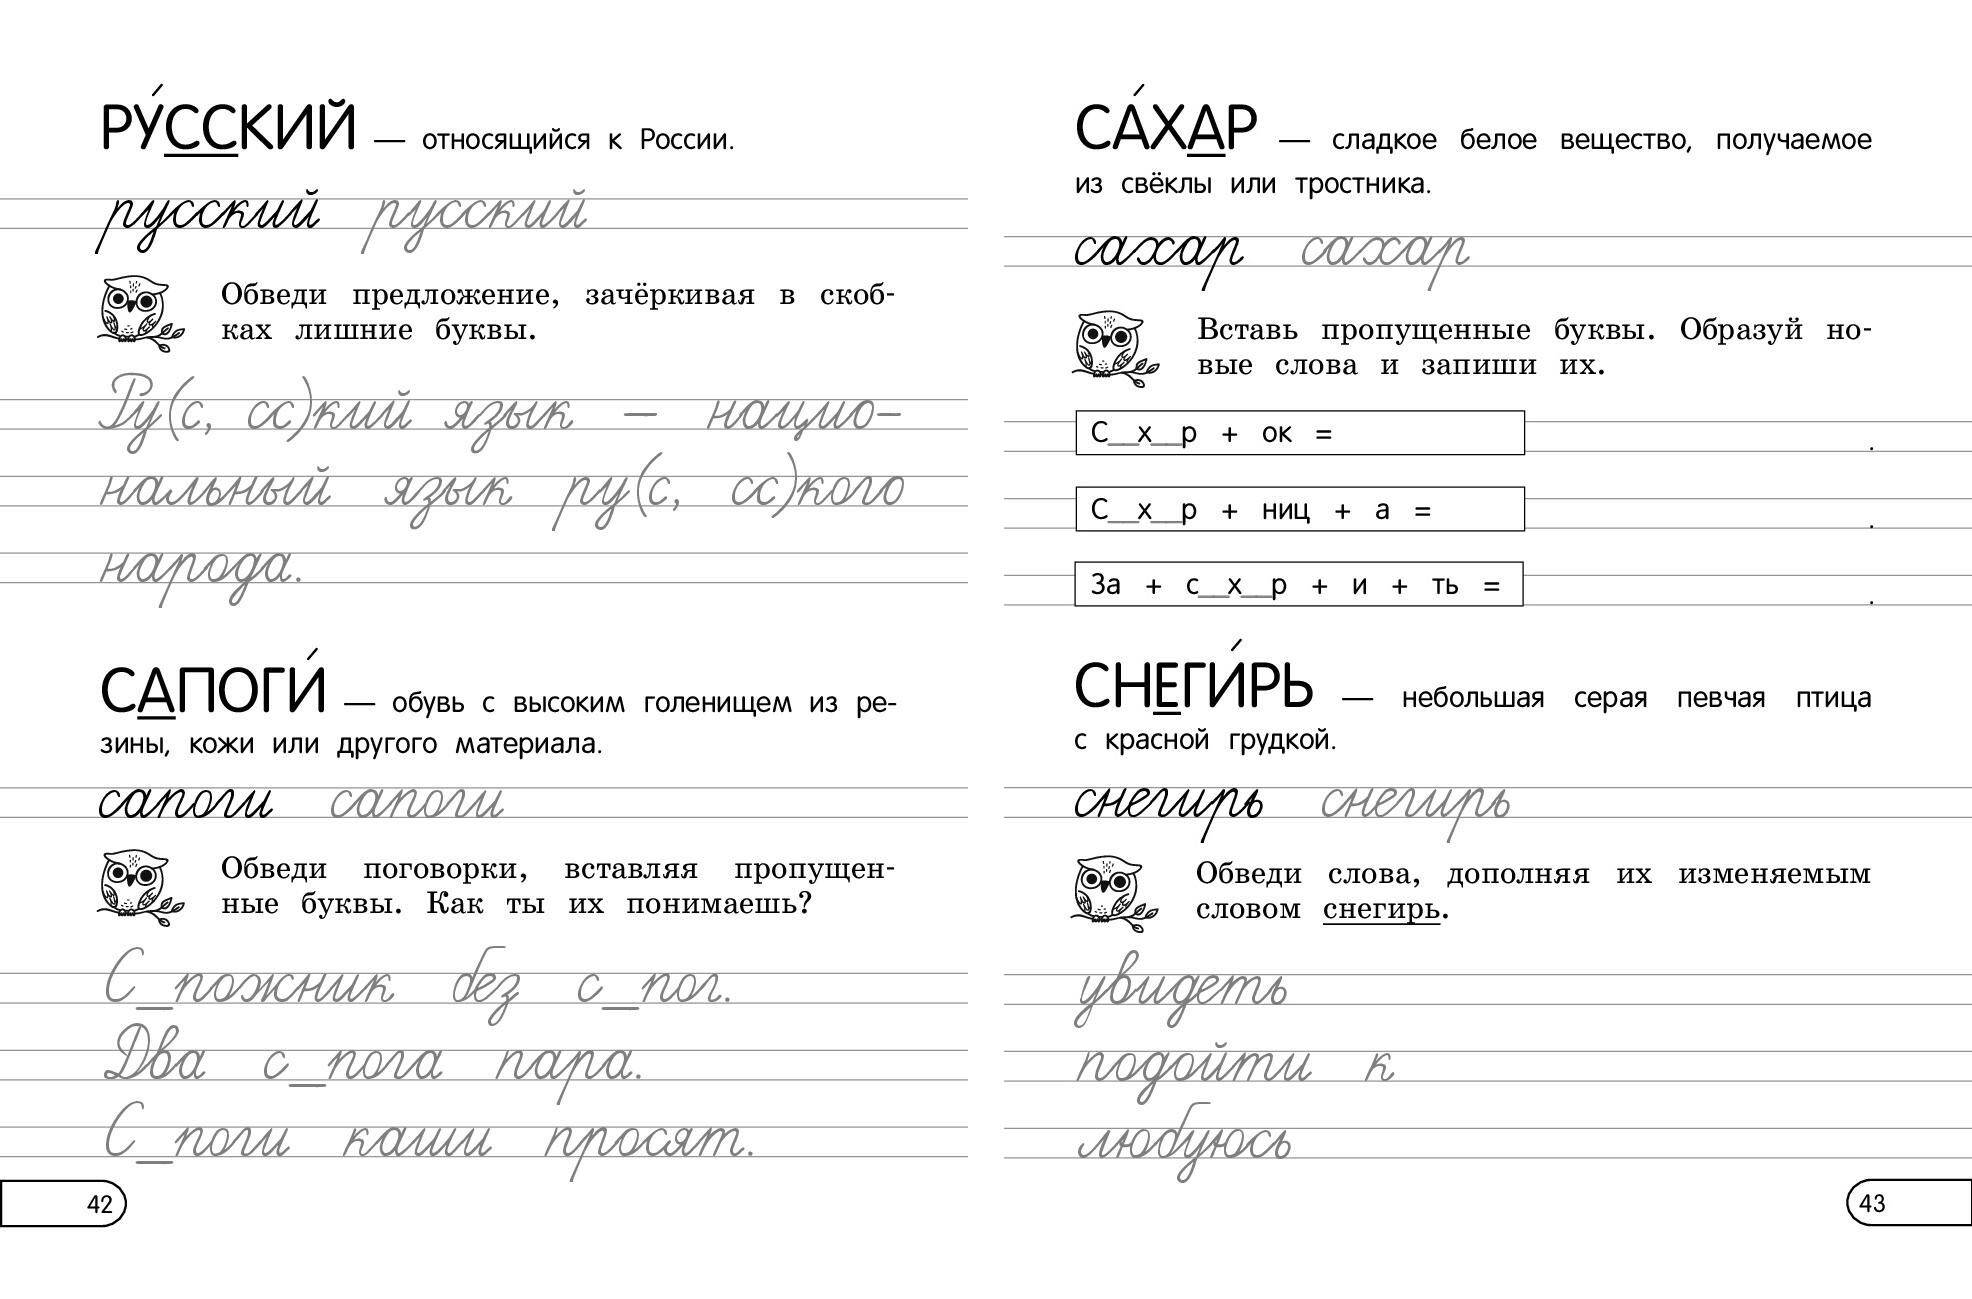 РУ́ССКИЙ — относящийся к России.
русский русский
Обведи предложение, зачёркивая в скоб-
ках лишние буквы.
Ру(с, сс)кий язык — нацио-
нальный язык ру(с, сс)кого
народа.
САПОГИ́ — обувь с высоким голенищем из ре-
зины, кожи или другого материала.
сапоги сапоги
Обведи поговорки, вставляя пропущен-
ные буквы. Как ты их понимаешь?
С_пожник без с_пог.
Два с_пога пара.
С_поги каши просят.
42
СА́ХАР — сладкое белое вещество, получаемое
из свёклы или тростника.
сахар сахар
Вставь пропущенные буквы. Образуй но-
вые слова и запиши их.
С__х__р + ок = .
С__х__р + ниц + а = .
За + с__х__р + и + ть = .
СНЕГИ́РЬ — небольшая серая певчая птица
с красной грудкой.
снегирь снегирь
Обведи слова, дополняя их изменяемым
словом снегирь.
увидеть
подойти к
любуюсь
43